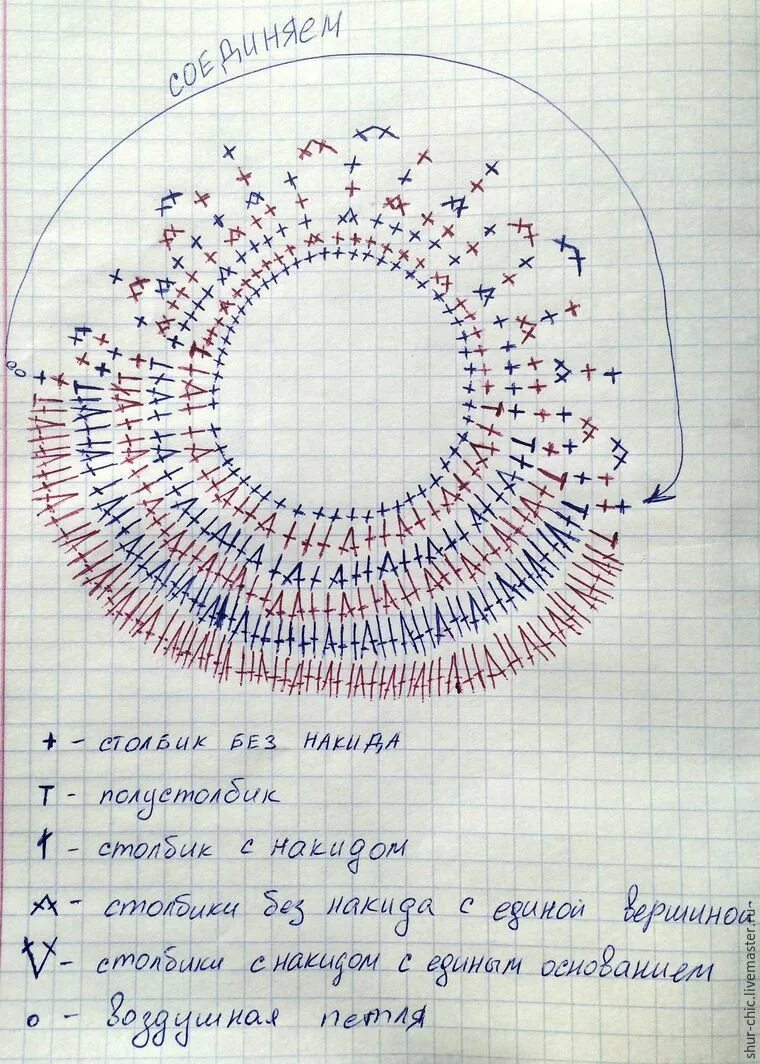 СОЕДИНЯЕМ
+ - СТОЛБИК БЕЗ НАКИДА
Т - полустолбик
† - столбик с накидом
- столбики без накида с единой вершиной
V - столбики с накидом с единым основанием
о - воздушная петля
shur-chic.livemaster.ru